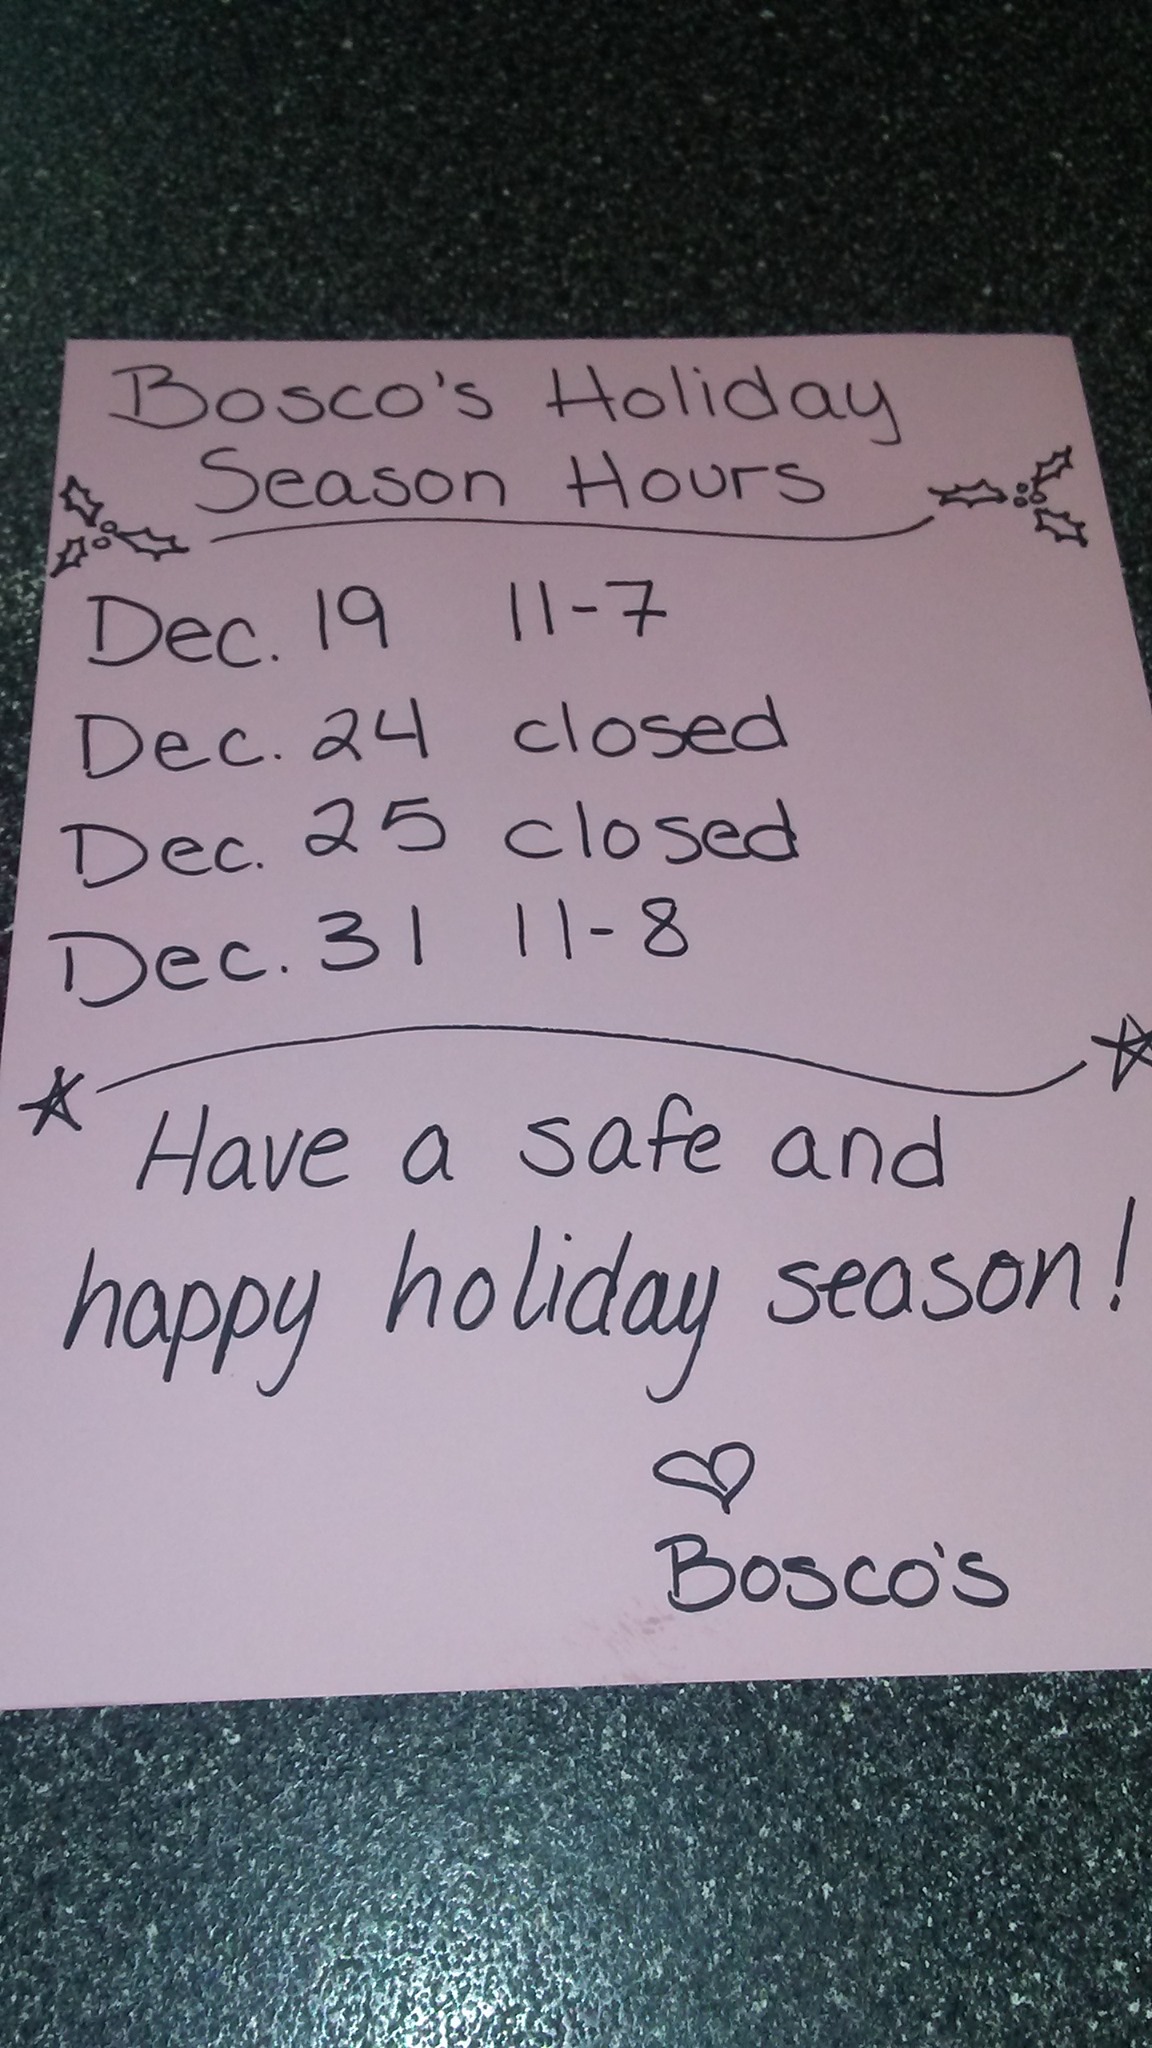 Bosco's Holiday
Season Hours
Dec. 19 11-7
Dec. 24 closed
Dec. 25 closed
Dec. 31 11-8
Have a safe and
happy holiday season!
Bosco's